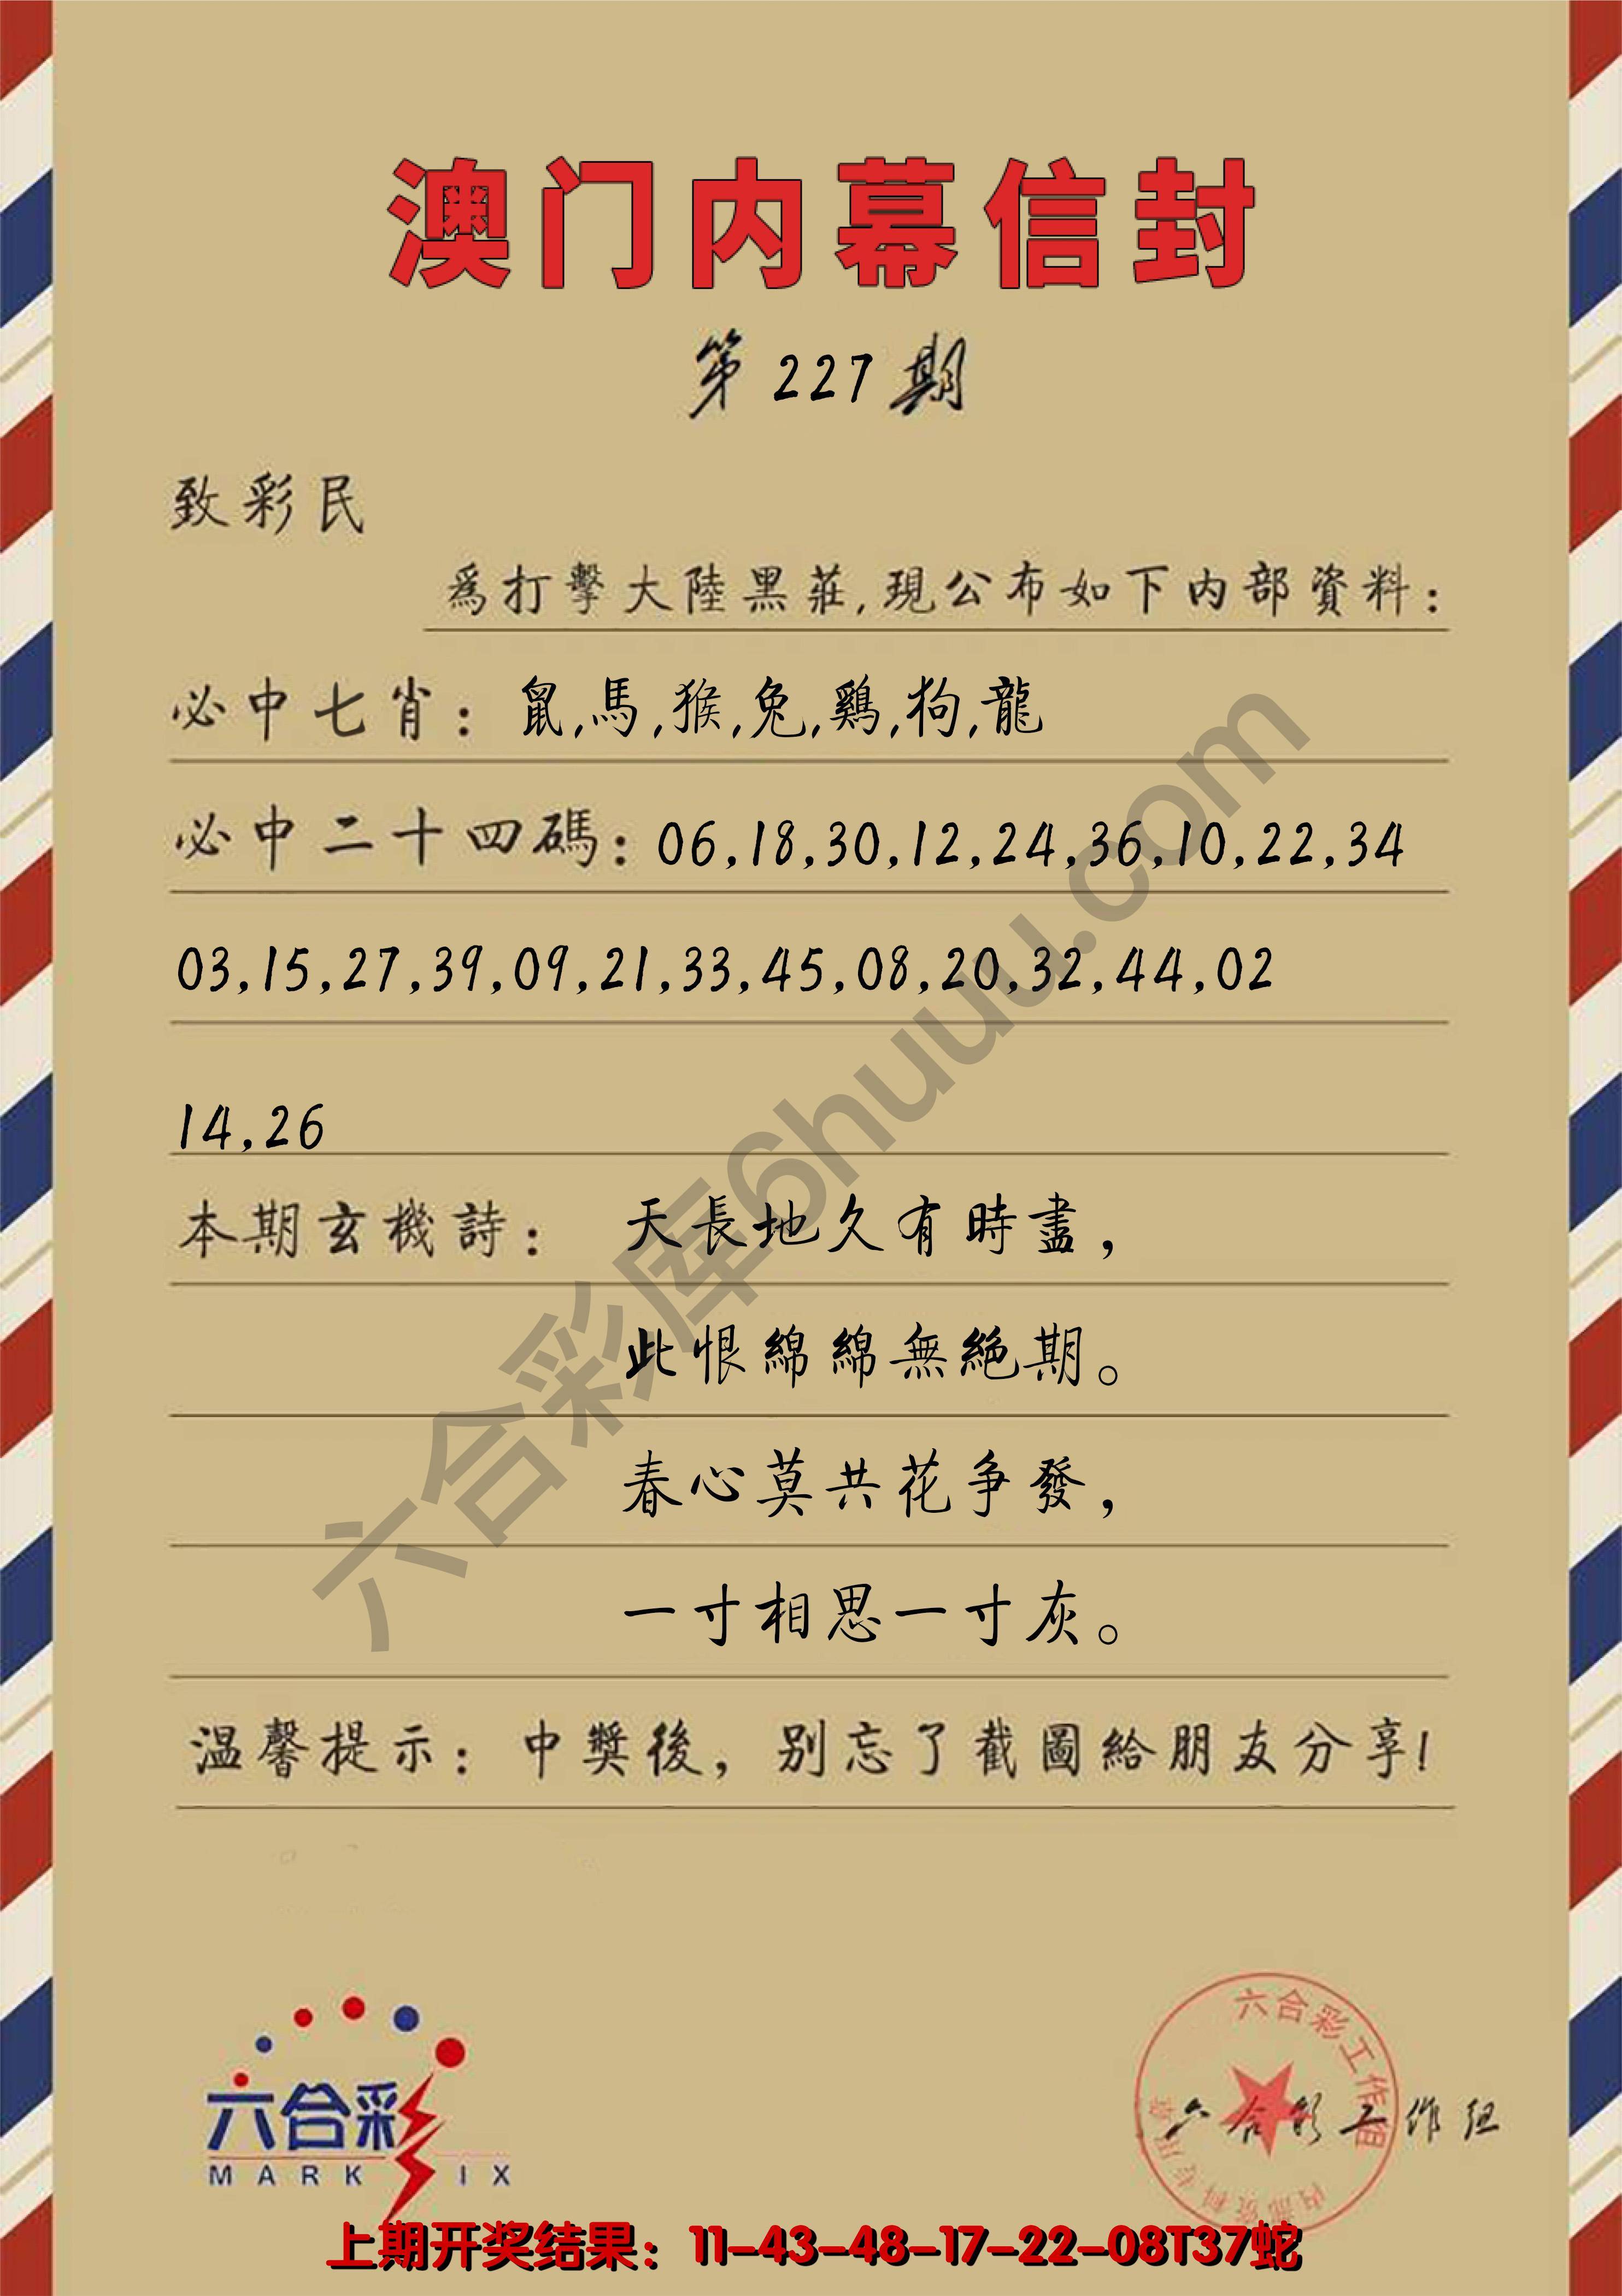 澳门内幕信封
第227期
致彩民
為打擊大陸黑莊,現公布如下内部資料:
必中七肖: 鼠,馬,猴,兔,鷄,狗,龍
必中二十四碼: 06,18,30,12,24,36,10,22,34
03,15,27,39,09,21,33,45,08,20,32,44,02
14,26
本期玄機詩: 天長地久有時盡,
此恨綿綿無絶期。
春心莫共花争發,
一寸相思一寸灰。
温馨提示: 中獎後, 别忘了截圖給朋友分享!
六合彩库6huuu.com
六合彩
MARK SIX
六合彩工作组
内部资料专用章
六合彩工作组
上期开奖结果: 11-43-48-17-22-08T37蛇